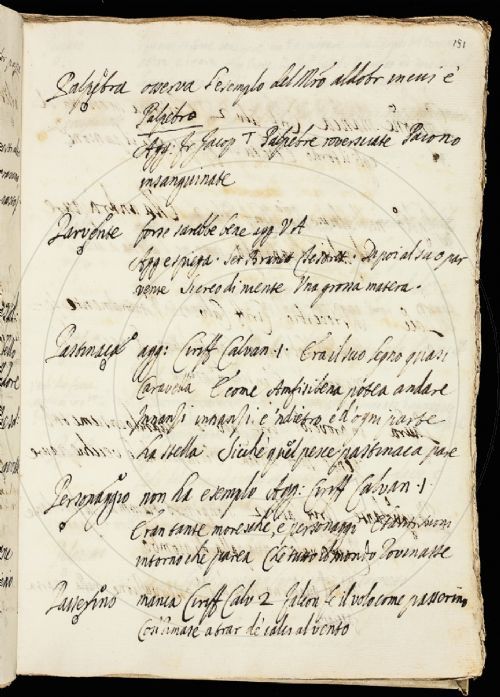 151
Palpebra overva l'esemplo del Mro aldobr in cui è
Palpebro
Agg: fr Jacop T Palpebre roversciate Paiono
insanguinate
Parvente forse sarebbe bene agg V A
Agg e spiega. Ser Brunet Tesoret. Da poi al suo par
vente Si creò di niente Una grossa matera.
Pastinaca agg: Ciriff Calvan. 1. Era il suo legno quasi
Caravella E come Anfisibena potea andare
Innansi innansi, e 'ndietro, e d'ogni parte
ha stella Sicche quel pesce pastinaca pare
Personaggio non ha exemplo Agg: Ciriff Calvan. 1
Eran tante moresche, e personaggi
intorno che parea Che tutto il mondo rovinasse
Passerino manca Ciriff Calv 2 Falcon è il volo come passerino
a trar de calci al vento